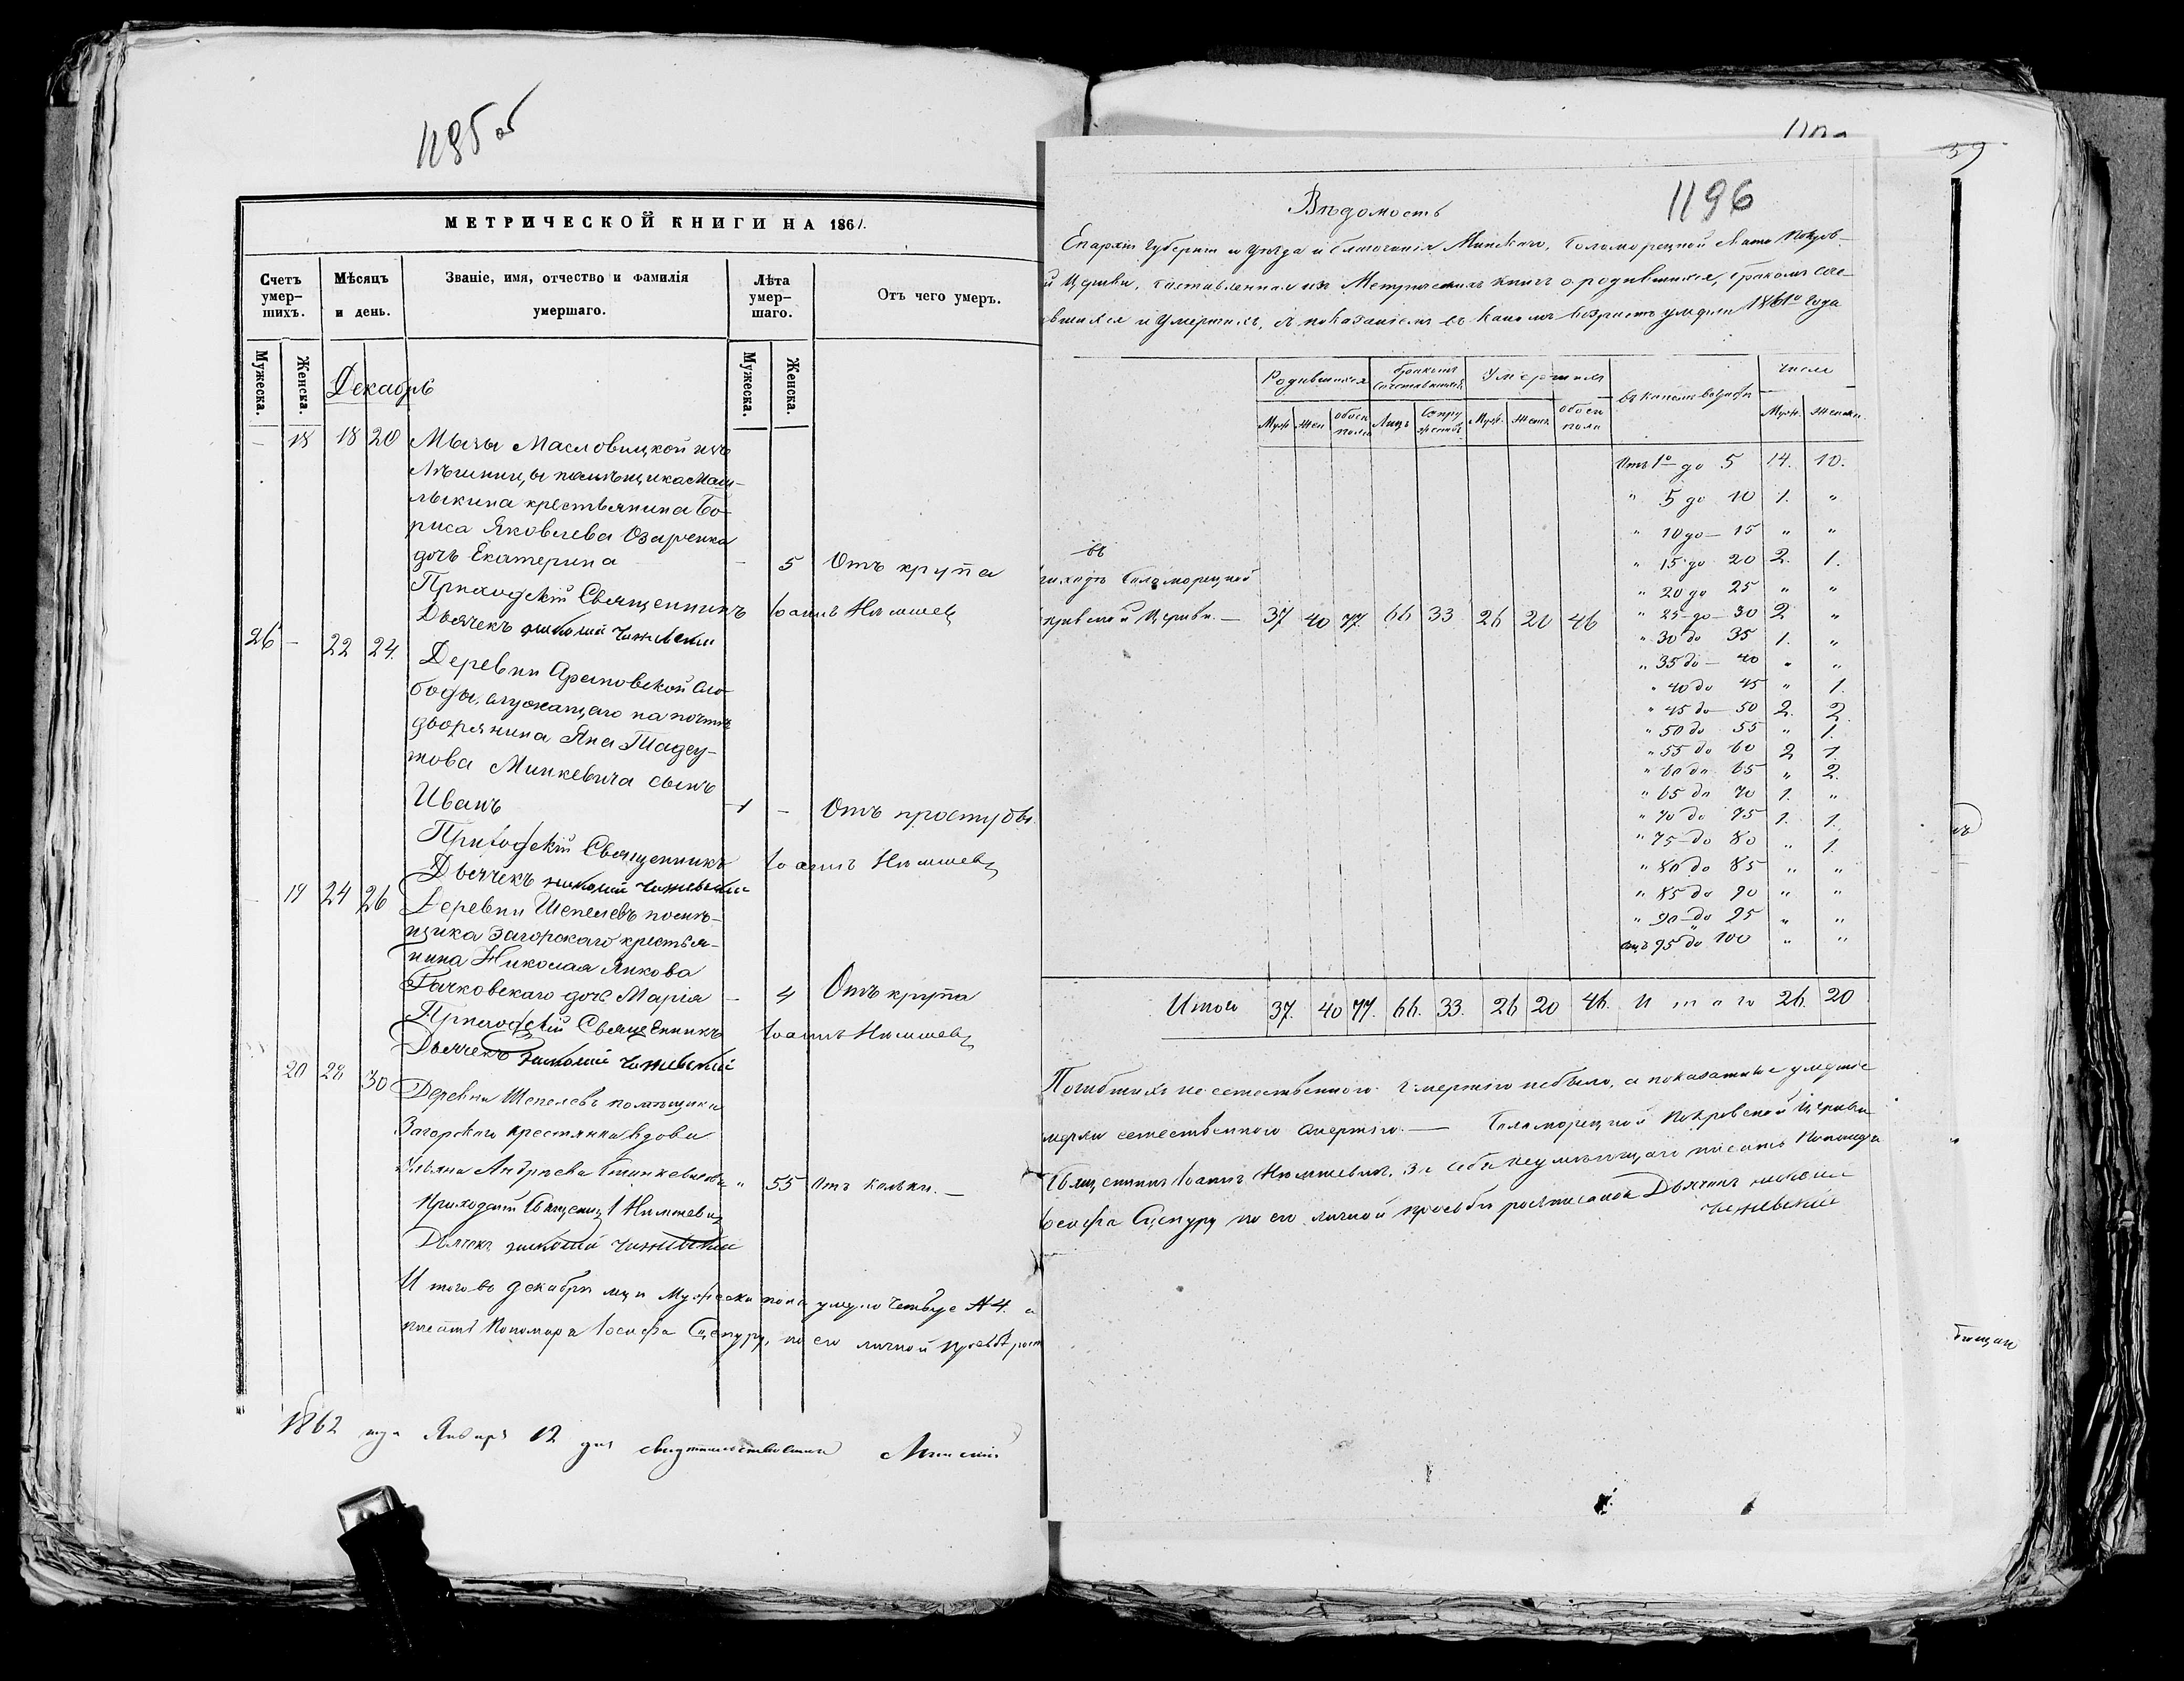 1195 об
МЕТРИЧЕСКОЙ КНИГИ НА 1861.
Счетъ умер-шихъ.
Мѣсяцъ и день.
Званіе, имя, отчество и фамилія умершаго.
Лѣта умер-шаго.
Отъ чего умеръ.
Мужеска. Женска. Мужеска. Женска.
Декабрь
– 18 18 20 Мызы Масловицкой изъ
помѣщика
крестьянина Бо-
риса Яковлева Озаренка
дочь Екатерина – 5 Отъ крупа
Приходскій Священникъ Іоаннъ
Дьячекъ Николай
26 – 22 24. Деревни Слo-
боды, служащаго на почтѣ
дворянина Яна Тадеу-
шова Минкевича сынъ
Иванъ 1 – Отъ простуды.
Приходскій Священникъ Іоаннъ
Дьячекъ Николай
– 19 24 26 Деревни Шепелевъ помѣ-
щика Загорскаго крестья-
нина Николая Янкова
Гачковскаго дочь Марія – 4 Отъ крупа
Приходскій Священникъ Іоаннъ
Дьячекъ Николай
20 28 30 Деревни Шепелевъ помѣщика
Загорскаго крестянка вдова
Ульяна Андрѣева " 55 Отъ кольки. –
Приходскій Священникъ І
Дьячекъ Николай
Итого въ декабрѣ м-цѣ Мужеска пола умерло четверо № 4. а
писать Пономаря Іосифа Сцепуру, по его личной просьбѣ
1862 года Января 12 дня свидѣтельствовалъ Минскій
1196
Вѣдомость
Епархіи Губерніи и Уѣзда и благочинія Минскаго, Свято Покров-
й Церкви, составленная изъ Метрическихъ книгъ о родившихся, бракомъ соче-
вшихся и Умершихъ, съ показаніемъ въ какомъ возрастѣ умерли 1861го года
Родившихся Бракомъ сочетавшихся Умершихъ въ какомъ возрастѣ число
Муж. Жен. обоего пола Лицъ Супружествъ Муж. Женс. обоего пола Муж. Женск.
Отъ 1го до 5 14. 10.
" 5 до 10 1. "
" 10 до – 15 " "
" 15 до 20 2. 1.
" 20 до 25 " "
" 25 до – 30 2 "
" 30 до 35 1. "
" 35 до – 40 " "
" 40 до 45 " 1.
" 45 до – 50 2. 2.
" 50 до 55 " 1.
" 55 до 60 2 1.
" 60 до 65 " 2.
" 65 до 70 1. "
" 70 до 75 1. 1.
" 75 до 80 " 1.
" 80 до 85 " "
" 85 до 90 " "
" 90 до 95 " "
отъ 95 до 100 " "
въ
Церкви. – 37 40 77. 66 33 26 20 46
Итого 37. 40 77. 66. 33. 26 20 46. Итого 26. 20
Погибшихъ не естественного смертію небыло, а показанные умершіе
мерли естественного смертію. – Покровской Церкви
Священникъ Іоаннъ, За себя и неумѣющаго писать Пономаря
Іосифа Сцепуру по его личной просьбѣ росписался Дьячекъ Николай